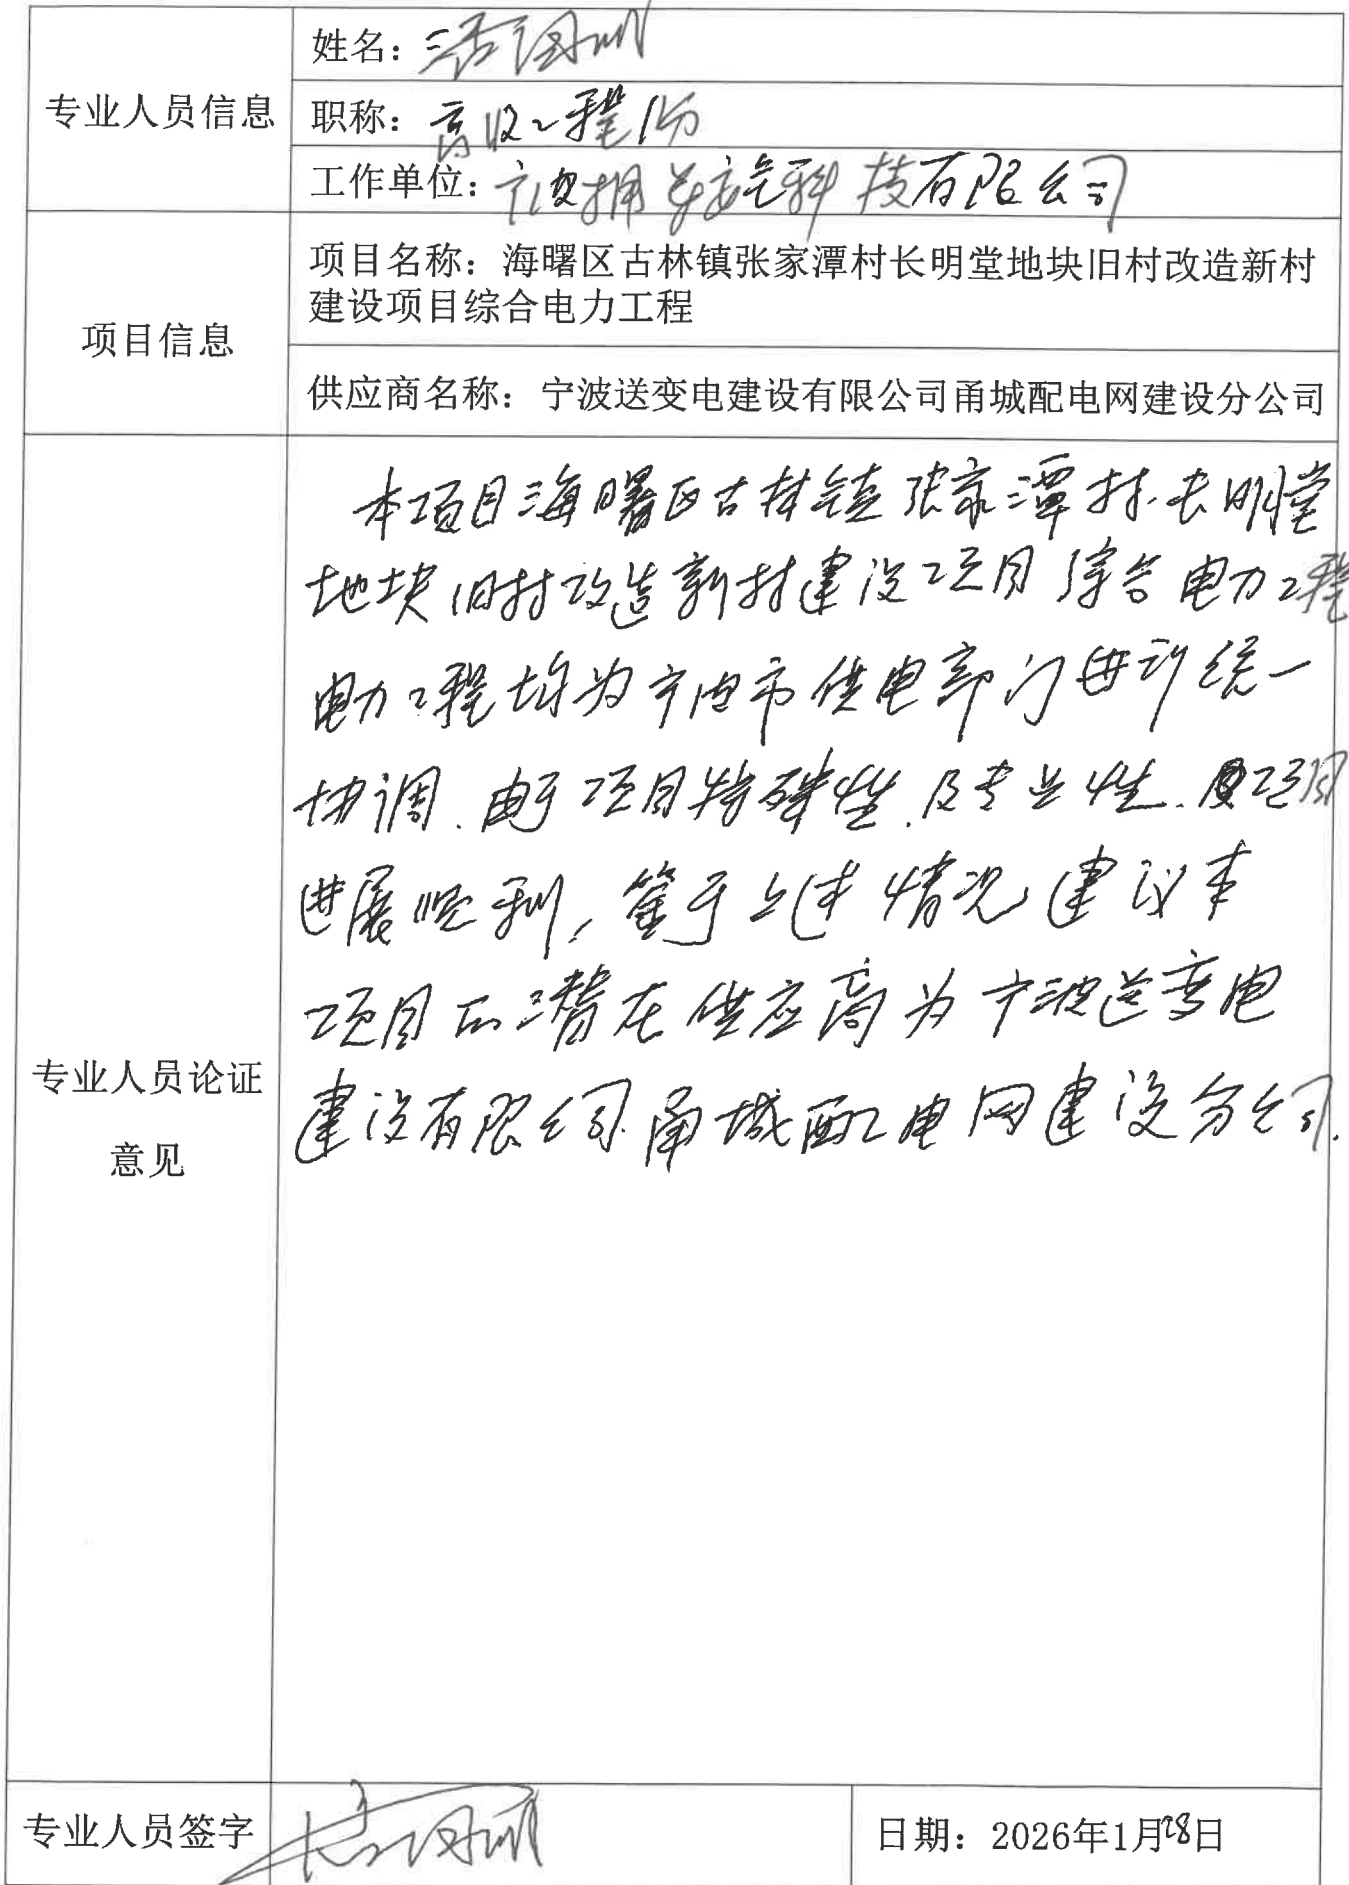 专业人员信息
姓名：
职称：高级工程师
工作单位：宁波拥 科技有限公司
项目信息
项目名称：海曙区古林镇张家潭村长明堂地块旧村改造新村
建设项目综合电力工程
供应商名称：宁波送变电建设有限公司甬城配电网建设分公司
专业人员论证
意见
本项目海曙区古林镇张家潭村长明堂
地块旧村改造新村建设项目综合电力工程
电力工程均为宁波市供电部门进行统一
协调.由于项目特殊性.及专业性.及项目
进展顺利,鉴于上述情况,建议本
项目的潜在供应商为宁波送变电
建设有限公司甬城配电网建设分公司.
专业人员签字
日期：2026年1月28日